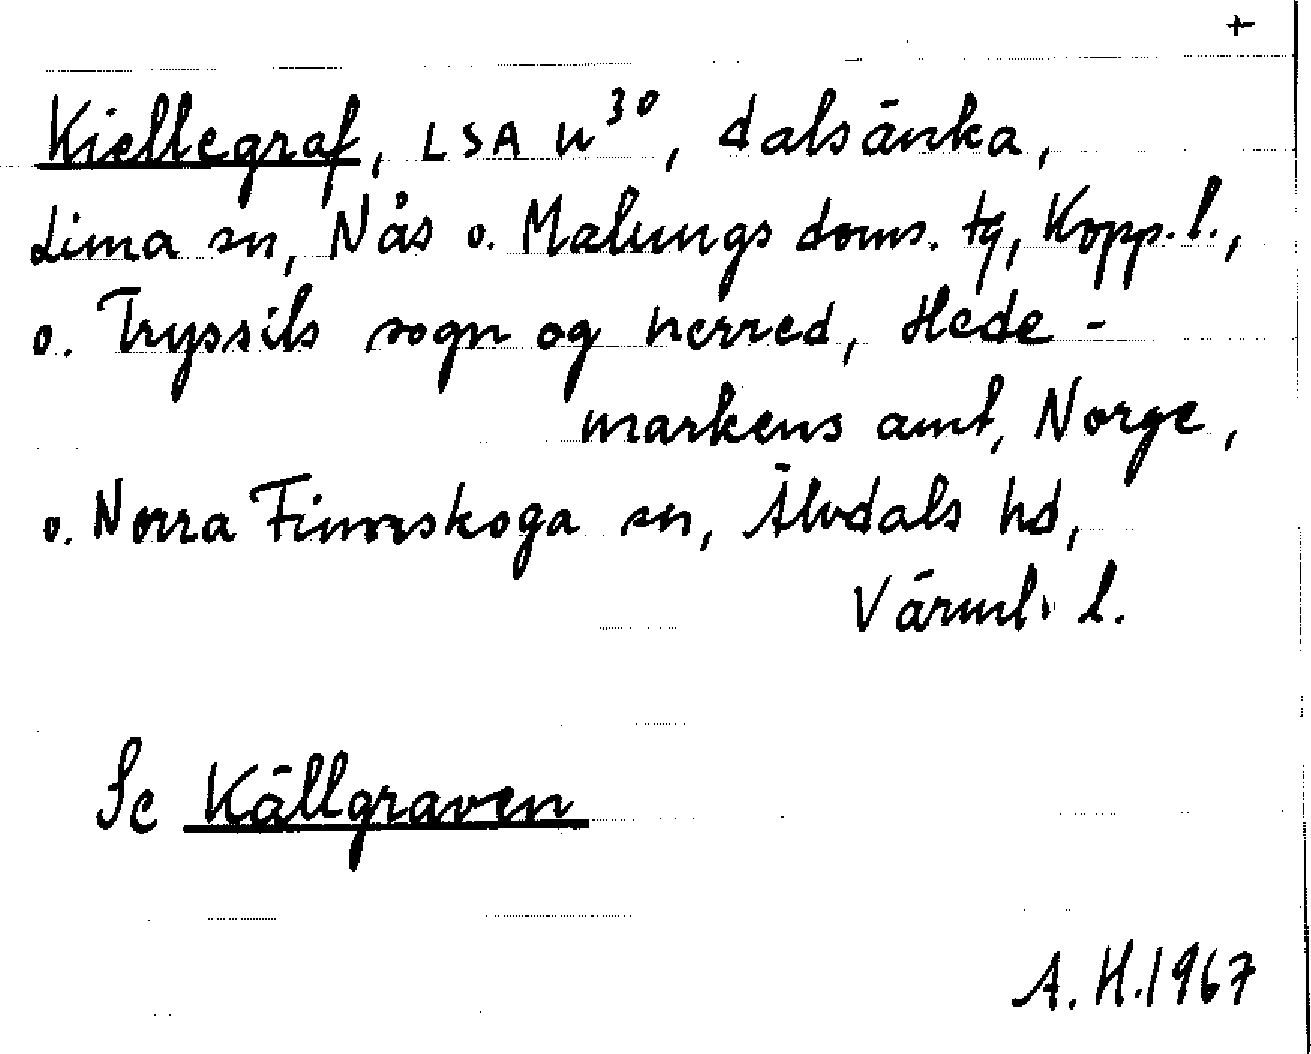 +
Kiellegraf, LSA U³⁰, dalsänka,
Lima sn, Nås o. Malungs doms. tg, Kopp. l.,
o. Tryssils sogn og herred, Hede-
markens amt, Norge,
o. Norra Finnskoga sn, Älvdals hd,
Värml. l.
Se Källgraven
A. H. 1967